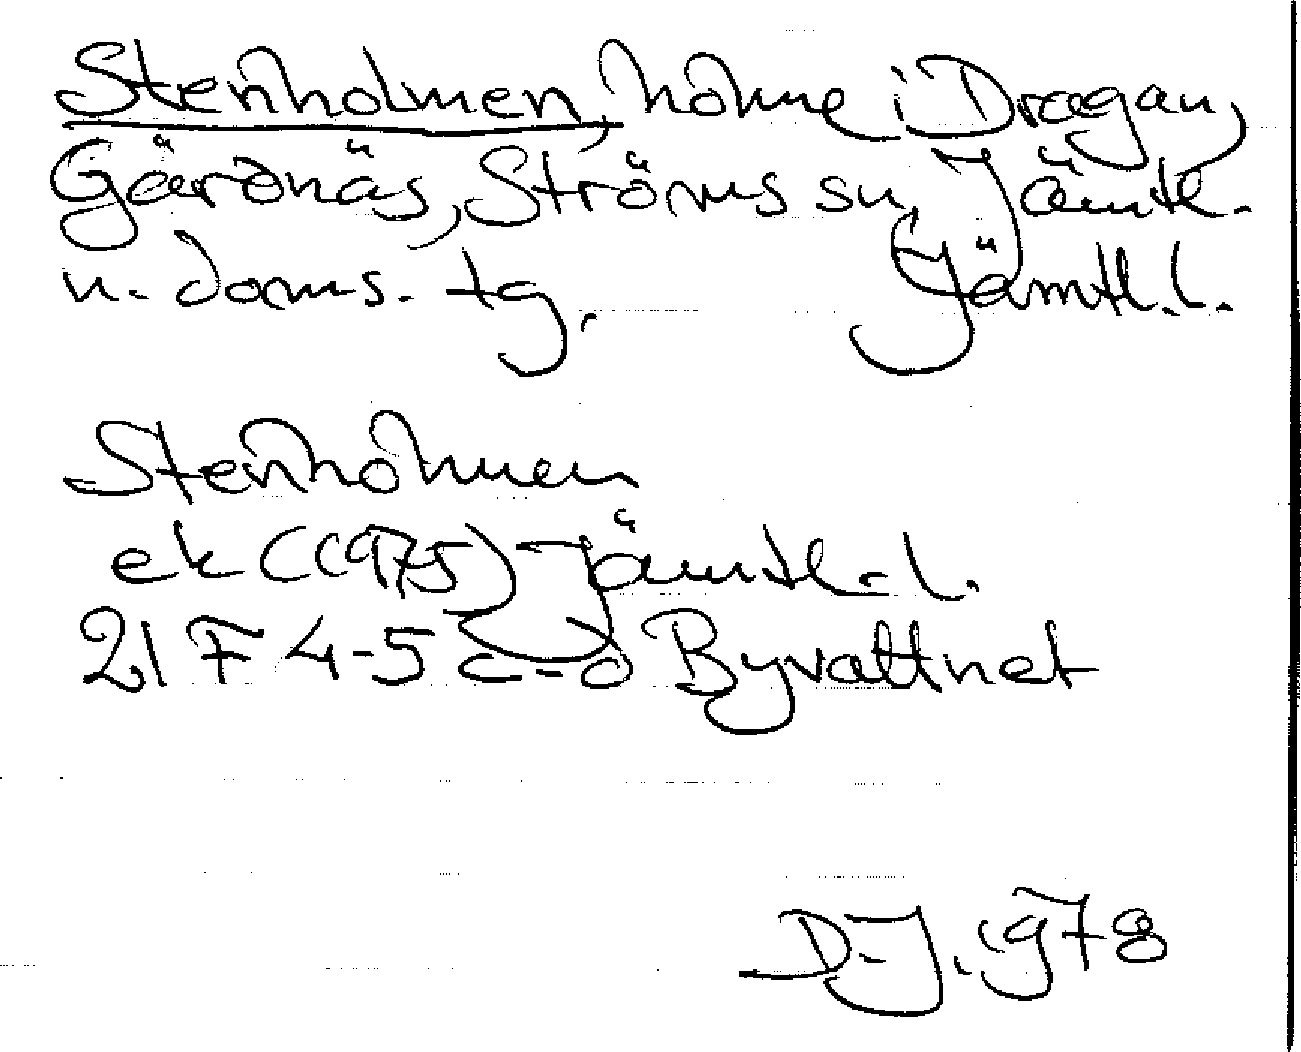 Stenholmen, holme i Dragan,
Gärdnäs, Ströms sn, Jämtl.
n. doms. tg. Jämtl. l.
Stenholmen
ek (1975) Jämtl. l.
21 F 4-5 c-d Byvattnet
D. J. 1978